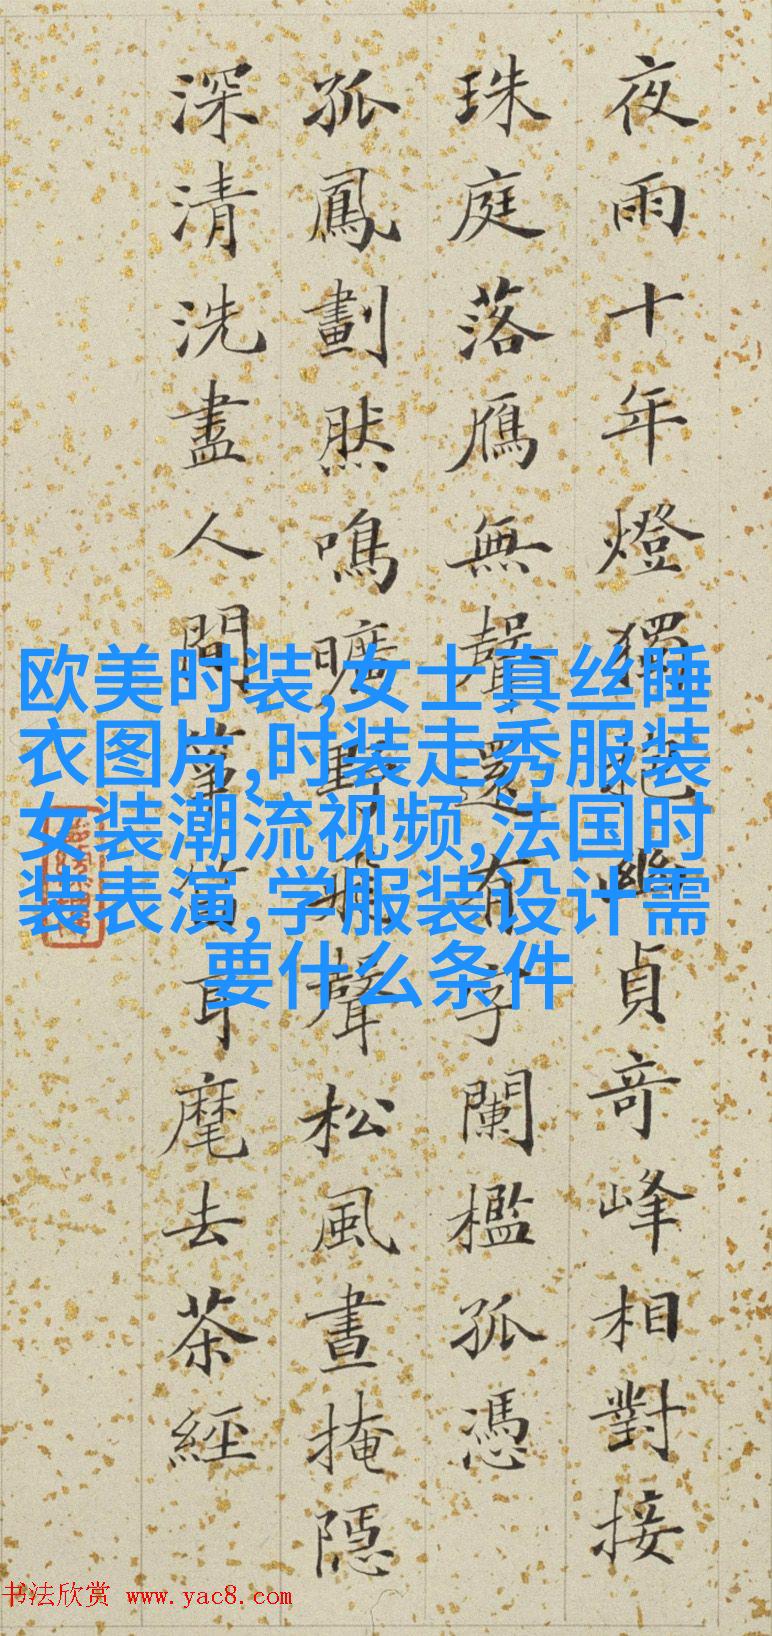 夜雨十年燈獨抱幽貞竒峰相對接
珠庭落鴈無聲還有字闌檻孤憑
孤鳳劃然鳴曠野飛聲松風晝掩隱
深清洗盡人間箏笛耳麾去茶經
欧美时装,女士真丝睡
衣图片,时装走秀服装
女装潮流视频,法国时
装表演,学服装设计需
要什么条件
书法欣赏 www.yac8.com